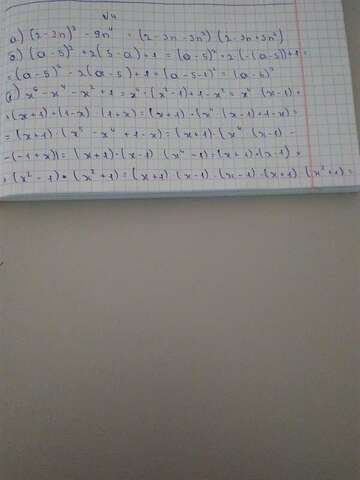 √4
а) (2-3n)² - 9n⁴ = (2-3n-3n²) (2-3n+3n²)
б) (a-5)² + 2(5-a)+1 = (a-5)² + 2(-(a-5))+1 =
= (a-5)² - 2(a-5)+1 = (a-5-1)² = (a-6)²
x⁶ - x⁴ - x² + 1 = x⁴ · (x²-1)+1-x² = x⁴ · (x-1) ·
· (x+1) + (1-x) · (1+x) = (x+1) · (x⁴ · (x-1)+1-x) =
= (x+1) · (x⁵ - x⁴ + 1 - x) = (x+1) · (x⁴ · (x-1) -
- (-1+x)) = (x+1) · (x-1) · (x⁴ - 1) = (x+1) · (x-1) ·
· (x² - 1) · (x² + 1) = (x+1) · (x-1) · (x-1) · (x+1) · (x²+1) =